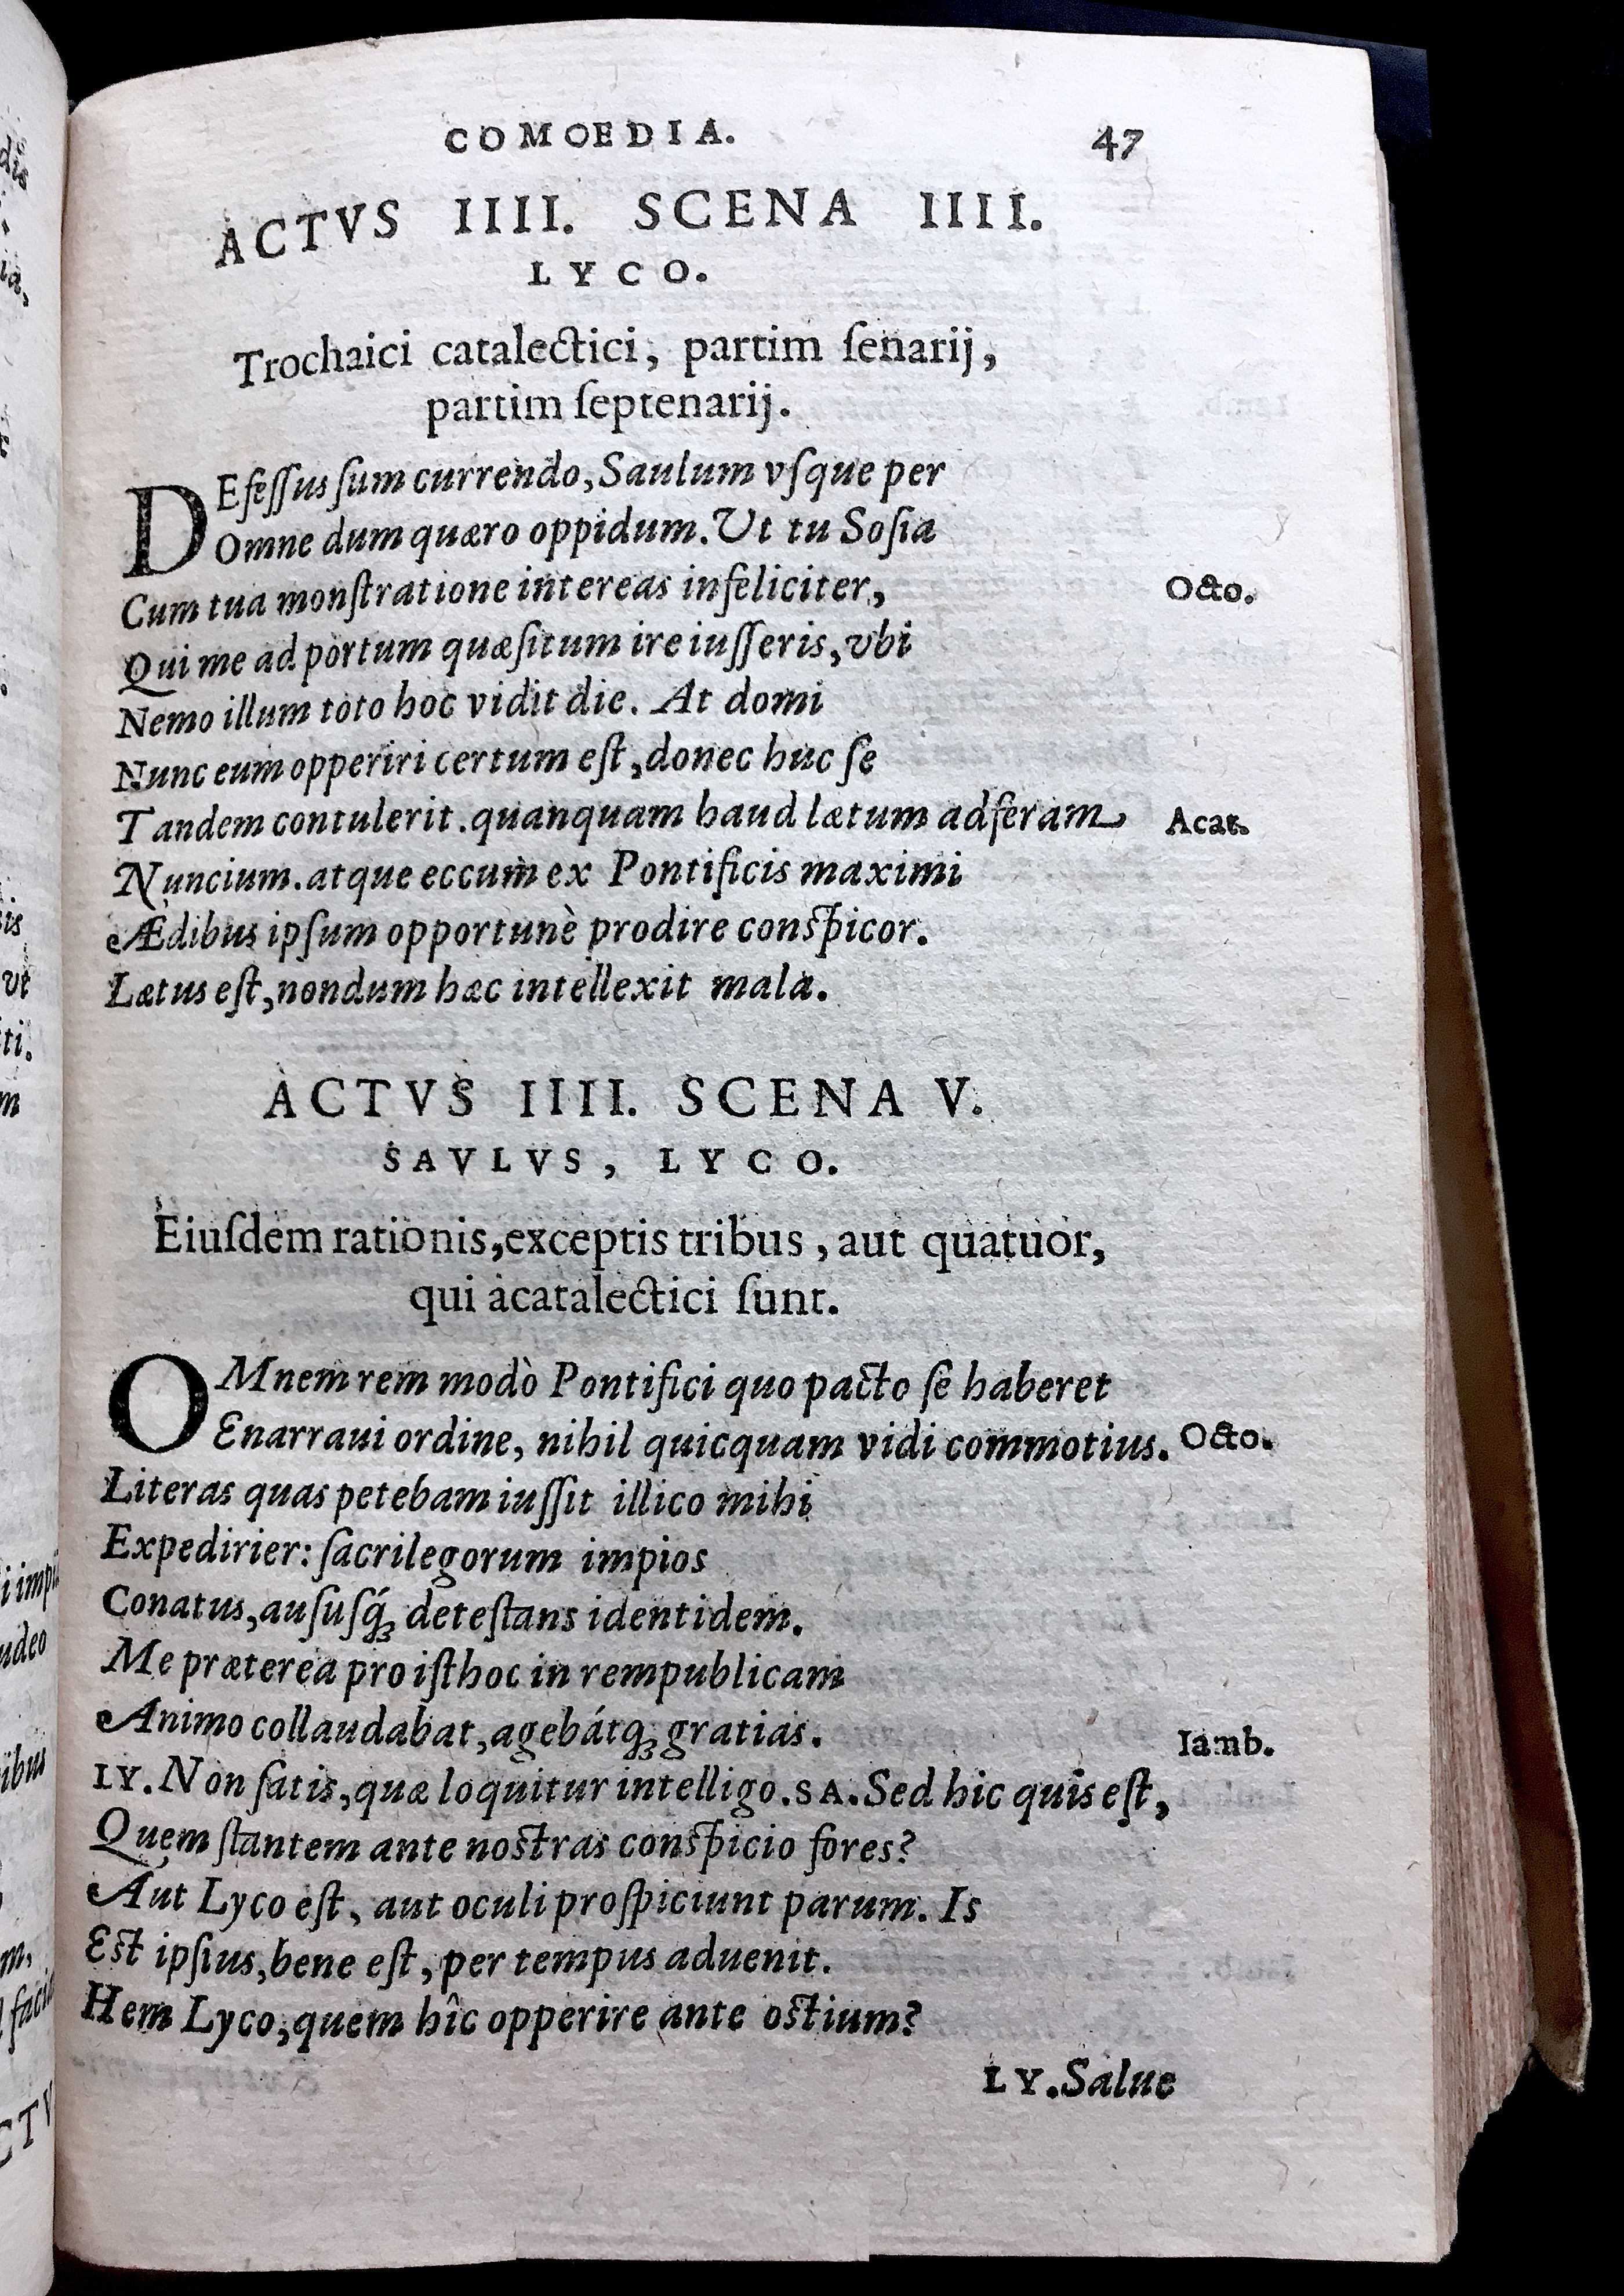 COMOEDIA. 47
ACTVS IIII. SCENA IIII.
LYCO.
Trochaici catalectici, partim ſenarij,
partim ſeptenarij.
DEfeſſus ſum currendo, Saulum vſque per
Omne dum quæro oppidum. Ut tu Soſia
Cum tua monſtratione intereas infeliciter, Octo.
Qui me ad portum quæſitum ire iuſſeris, vbi
Nemo illum toto hoc vidit die. At domi
Nunc eum opperiri certum eſt, donec huc ſe
Tandem contulerit. quanquam haud lætum adferam Acat.
Nuncium. atque eccum ex Pontificis maximi
Ædibus ipſum opportunè prodire conſpicor.
Lætus eſt, nondum hæc intellexit mala.
ACTVS IIII. SCENA V.
SAVLVS, LYCO.
Eiuſdem rationis, exceptis tribus, aut quatuor,
qui acatalectici ſunt.
OMnem rem modò Pontifici quo pacto ſe haberet
Enarraui ordine, nihil quicquam vidi commotius. Octo.
Literas quas petebam iuſſit illico mihi
Expedirier: ſacrilegorum impios
Conatus, auſuſq́ꝫ deteſtans identidem.
Me præterea pro iſthoc in rempublicam
Animo collaudabat, agebátqꝫ gratias.
LY. Non ſatis, quæ loquitur intelligo. SA. Sed hic quis eſt, Iamb.
Quem ſtantem ante noſtras conſpicio fores?
Aut Lyco eſt, aut oculi proſpiciunt parum. Is
Eſt ipſius, bene eſt, per tempus aduenit.
Hem Lyco, quem hîc opperire ante oſtium?
LY. Salue